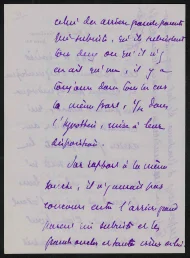 celui des arrière grands parents
qui subsiste, ou qu'ils subsistent
tous deux ou qu'il n'y
en ait qu'un, il y a
toujours dans tous les cas
la même part, 1/2 dans
l'hypothèse, mise à leur
disposition.
Par rapport à la même
souche, il n'y aurait pas
concours entre l'arrière grand
parent qui subsiste et les
grands oncles et tantes